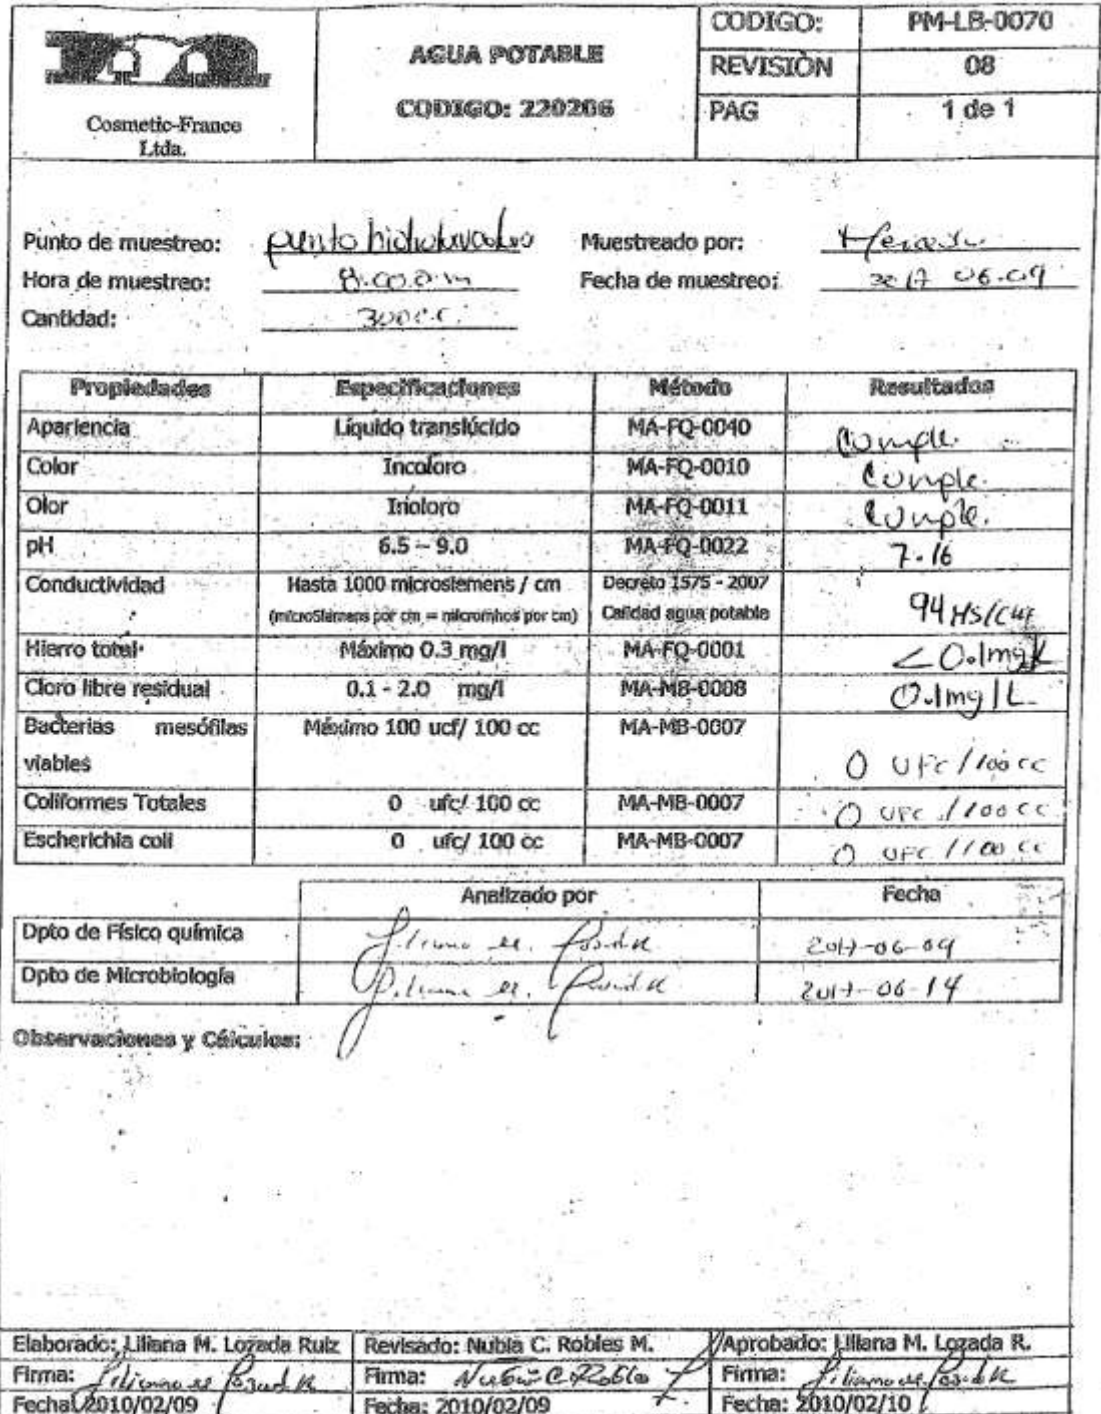 CODIGO: PM-LB-0070
AGUA POTABLE
REVISIÒN 08
CODIGO: 220206
PAG 1 de 1
Cosmetic-France
Ltda.
Punto de muestreo: punto hidrolavados Muestreado por:
Hora de muestreo: 8:00 a m Fecha de muestreo: 2017 06-09
Cantidad: 300 c.c.
Propiedades Especificaciones Método Resultados
Apariencia Líquido translúcido MA-FQ-0040 Cumple.
Color Incoloro MA-FQ-0010 Cumple.
Olor Inoloro MA-FQ-0011 Cumple.
pH 6.5 – 9.0 MA-FQ-0022 7.16
Conductividad Hasta 1000 microsiemens / cm Decreto 1575 - 2007
(microSiemens por cm = micromhos por cm) Calidad agua potable 94 µs/cm
Hierro total Máximo 0.3 mg/l MA-FQ-0001 < 0.1mg/L
Cloro libre residual 0.1 - 2.0 mg/l MA-MB-0008 0.1mg/L
Bacterias mesófilas Máximo 100 ucf/ 100 cc MA-MB-0007
viables 0 UFC/100 cc
Coliformes Totales 0 ufc/ 100 cc MA-MB-0007 0 UFC/100 cc
Escherichia coli 0 ufc/ 100 cc MA-MB-0007 0 UFC/100 cc
Analizado por Fecha
Dpto de Físico química 2017-06-09
Dpto de Microbiología 2017-06-14
Observaciones y Cálculos:
Elaborado: Liliana M. Lozada Ruiz Revisado: Nubia C. Robles M. Aprobado: Liliana M. Lozada R.
Firma: Firma: Nubia C. Robles Firma:
Fecha: 2010/02/09 Fecha: 2010/02/09 Fecha: 2010/02/10